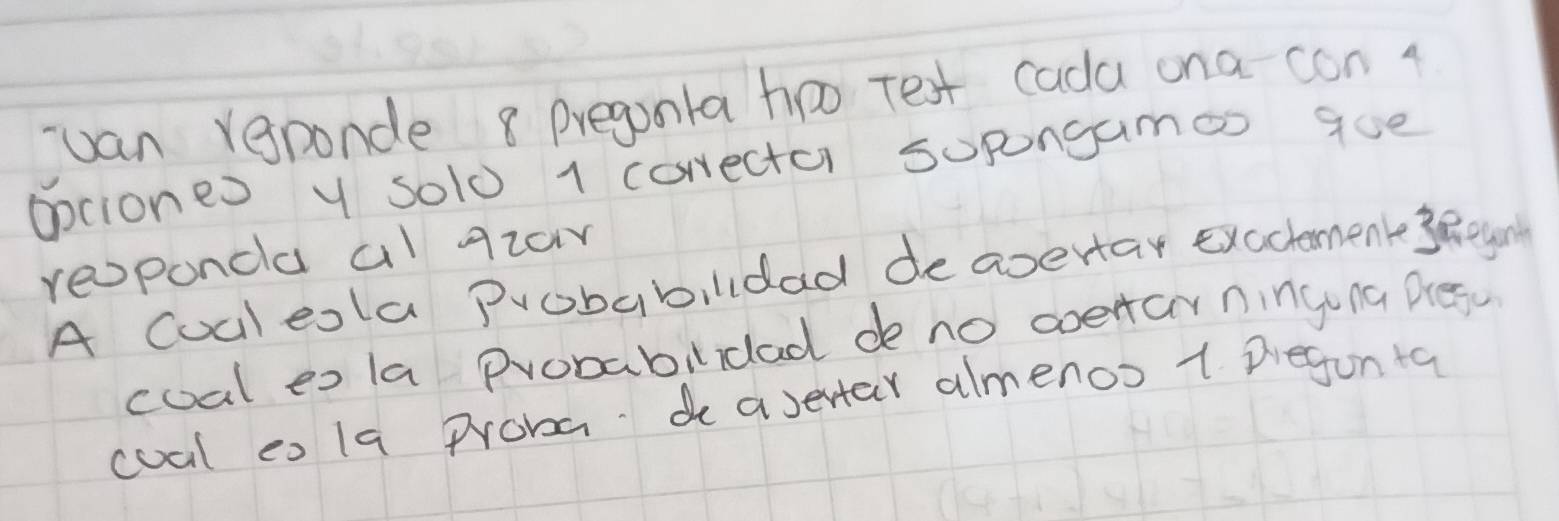 Juan reponde 8 pregunta tipo Test cada una con 4
opciones y solo 1 correcta supongamos que
responda al azar
A Cual es la Probabilidad de asertar exactamente 3
cual es la Probabilidad de no asertar ninguna Pregu
cual es la Proba. de asertar almenos 1 Pregunta